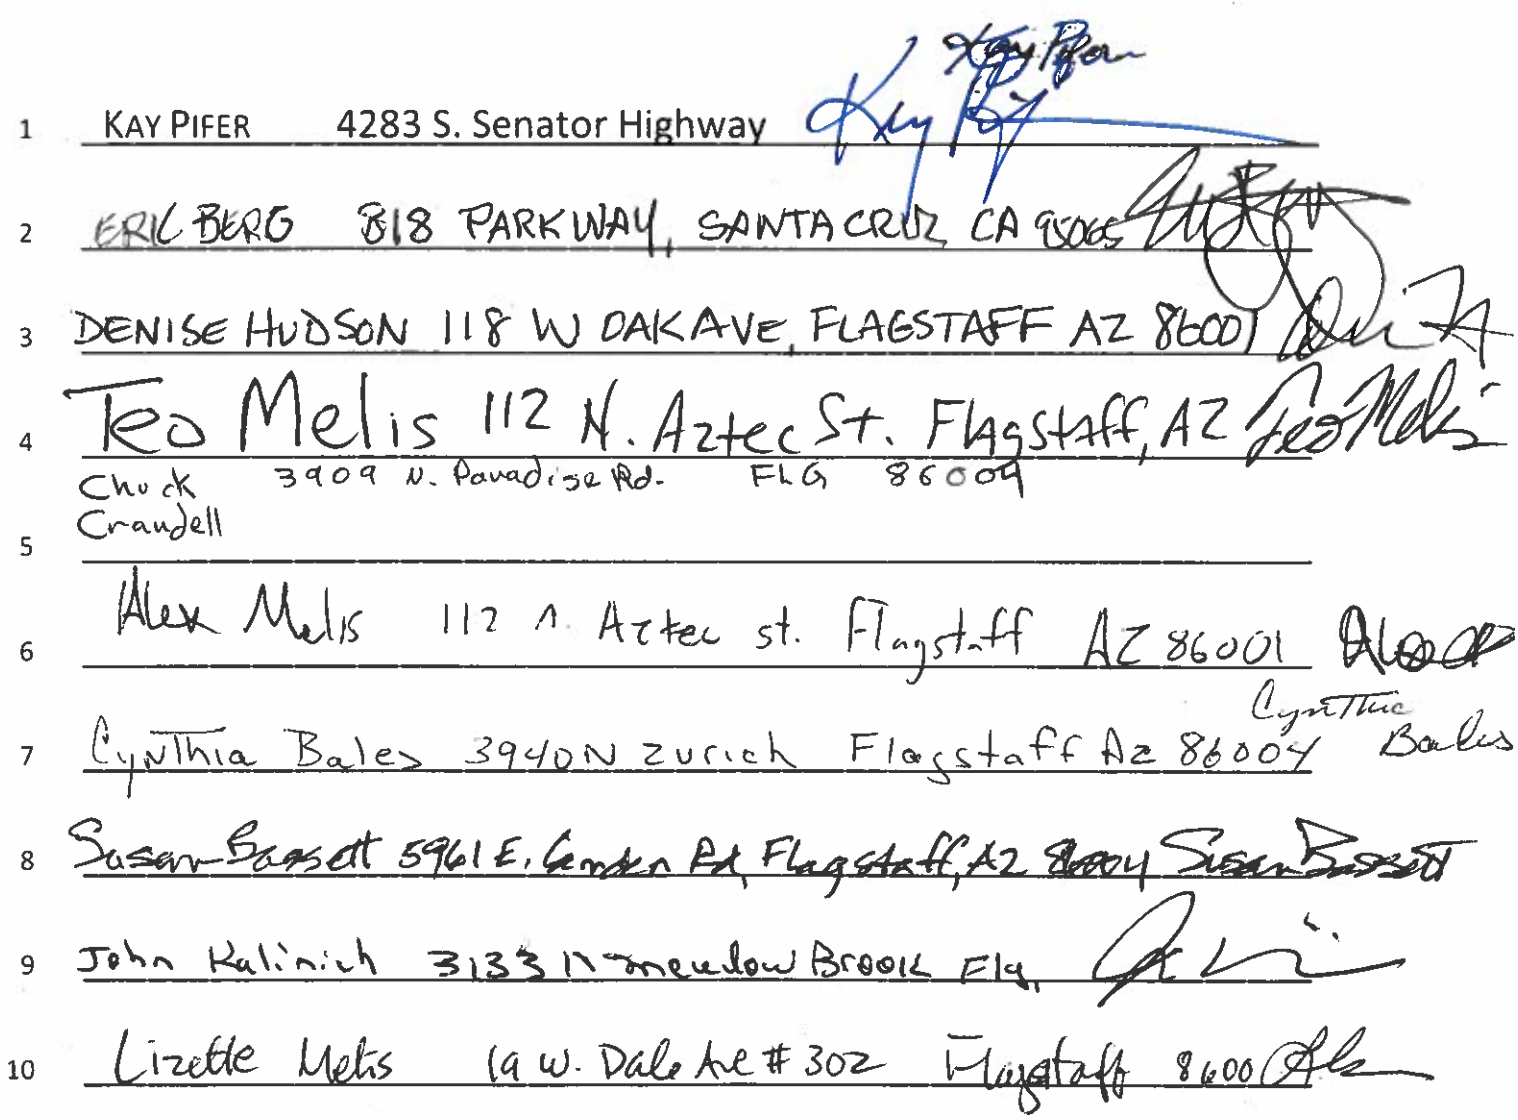 Kay Pifer
1 KAY PIFER 4283 S. Senator Highway Kay Pif
2 ERIC BERG 818 PARKWAY, SANTA CRUZ CA 95065
3 DENISE HUDSON 118 W OAK AVE, FLAGSTAFF AZ 86001
4 Teo Melis 112 N. Aztec St. Flagstaff, AZ Teo Melis
Chuck 3909 N. Paradise Rd. FLG 86004
Crandell
5
6 Alex Melis 112 N. Aztec st. Flagstaff AZ 86001
Cynthia
7 Cynthia Bales 3940 N Zurich Flagstaff Az 86004 Bales
8 Susan Bassett 5961 E. Camden Rd, Flagstaff, AZ 86004 Susan Bassett
9 John Kalinich 3133 N meadow Brook Flg,
10 Lizette Melis W. Dale Ave # 302 Flagstaff 8600